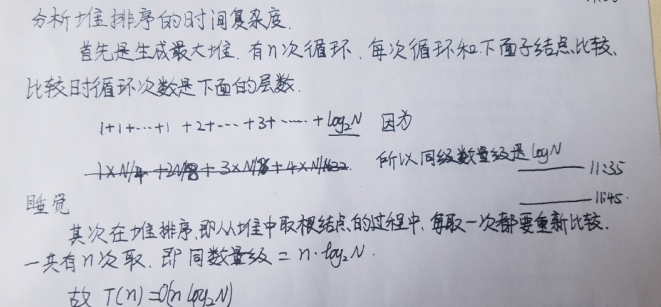 分析堆排序的时间复杂度.
首先是生成最大堆. 有n次循环. 每次循环和下面子结点比较、
比较时循环次数是下面的层数.
1+1+…+1 +2+…+3+……+log₂N 因为
1×N/4 +2N/8+3×N/16+4×N/32. 所以同级数量级是logN —— 11:35
—— 11:45.
睡觉
其次在堆排序,即从堆中取根结点的过程中,每取一次都要重新比较.
一共有n次取. 即同数量级 = n·log₂N.
故 T(n)=O(n log₂N)